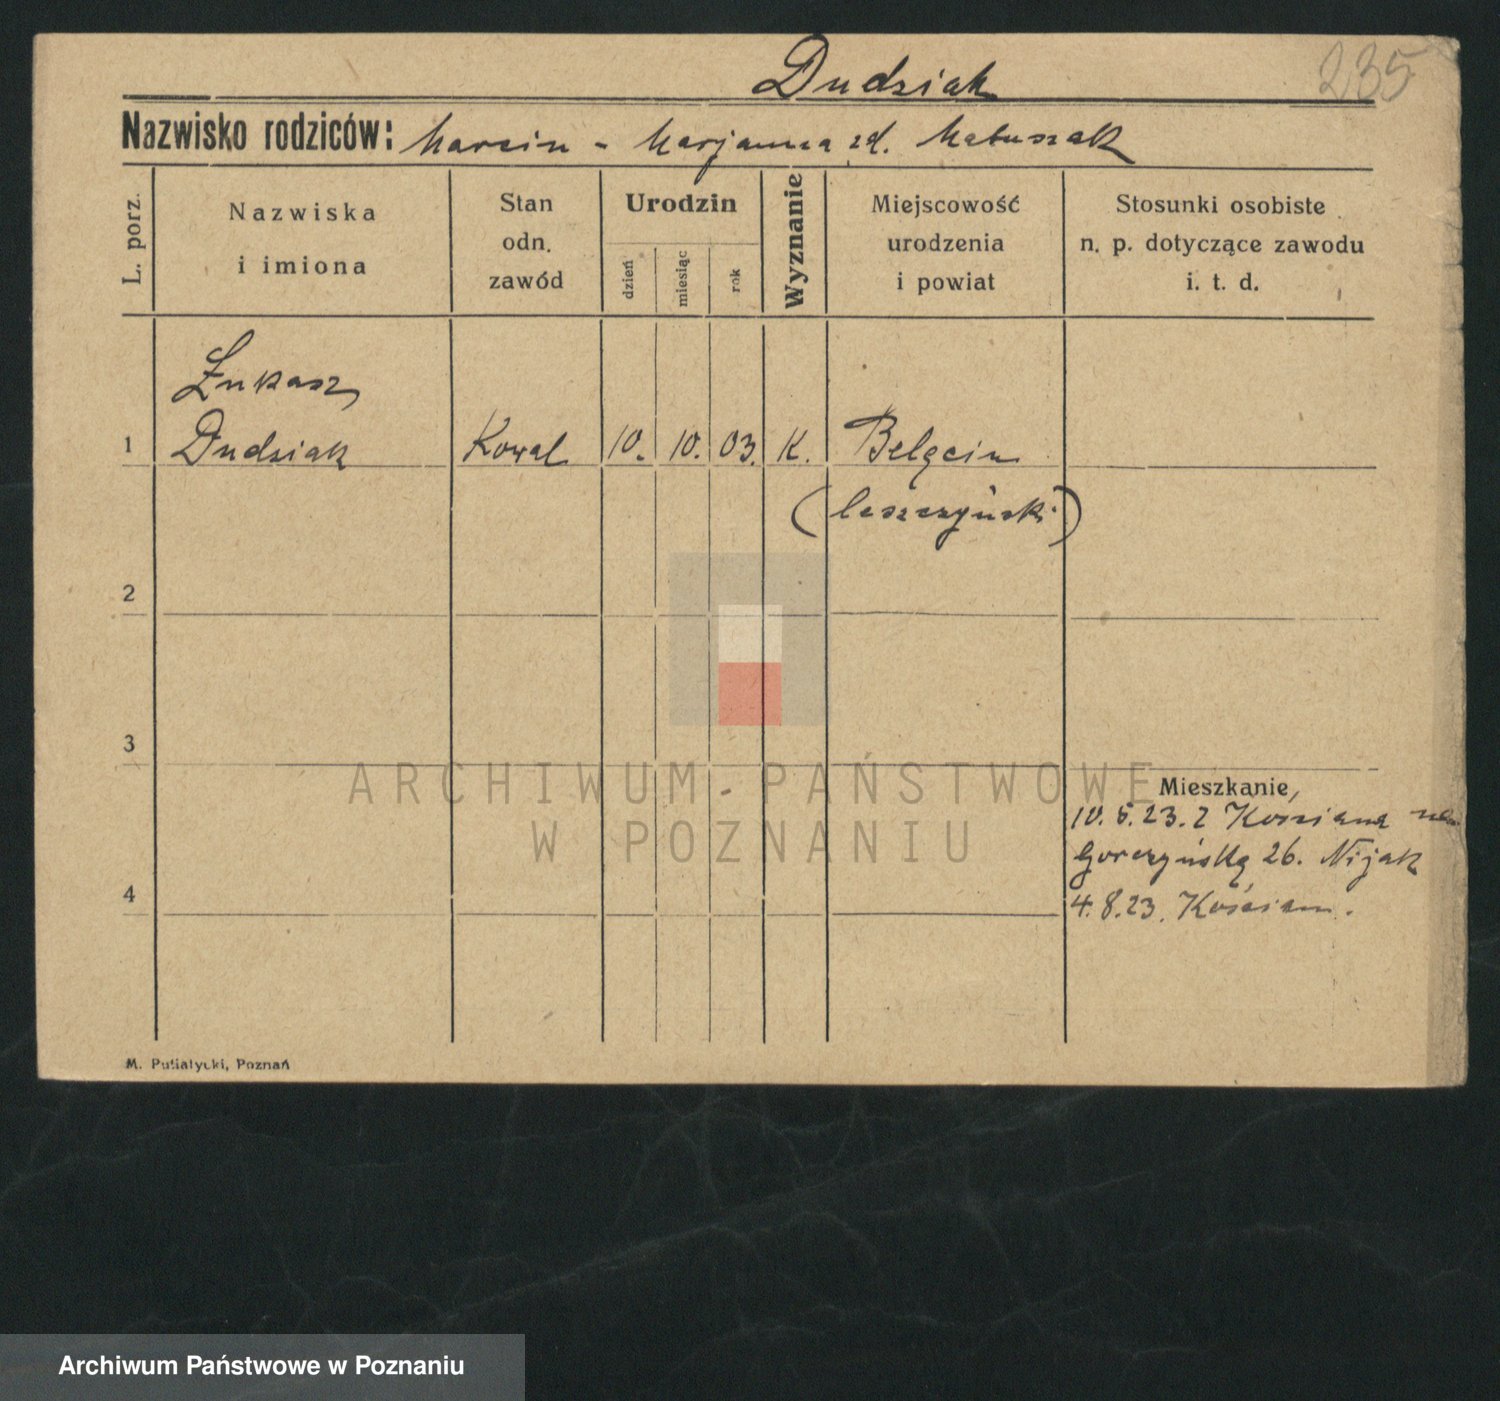 Dudziak 235
Nazwisko rodziców: Marcin - Marjanna zd. Matuszak
L. porz.
Nazwiska
i imiona
Stan
odn.
zawód
Urodzin
dzień
miesiąc
rok
Wyznanie
Miejscowość
urodzenia
i powiat
Stosunki osobiste
n. p. dotyczące zawodu
i. t. d.
Łukasz
1 Dudziak Kowal 10. 10. 03. K. Belęcin
(leszczyński)
2
3
Mieszkanie,
10.5.23. z Kościana na
Gorczyńską 26. Nijak
4
4.8.23. Kościan.
M. Putiatycki, Poznań
ARCHIWUM PAŃSTWOWE
W POZNANIU
Archiwum Państwowe w Poznaniu